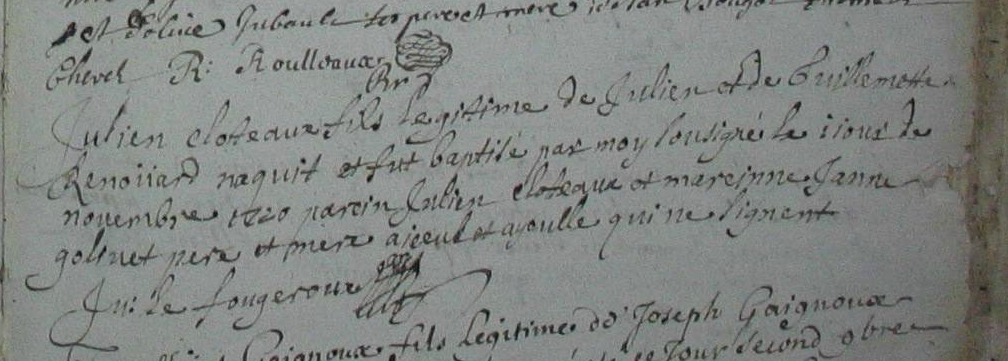 et dolive Jubault ses pere et mere
Chevel R: Roulleaux
Pr
Julien cloteaux fils legitime de Julien et de Guillemette
Renoüard naquit et fut baptisé par moy sousigné le i iour de
novembre 1720 parein Julien cloteaux et mareinne Janne
golivet pere et mere aieeul et ayeulle qui ne signent
Ju: le fougeroux
Gaignoux fils legitime de Joseph Gaignoux
ce Jour second 9bre